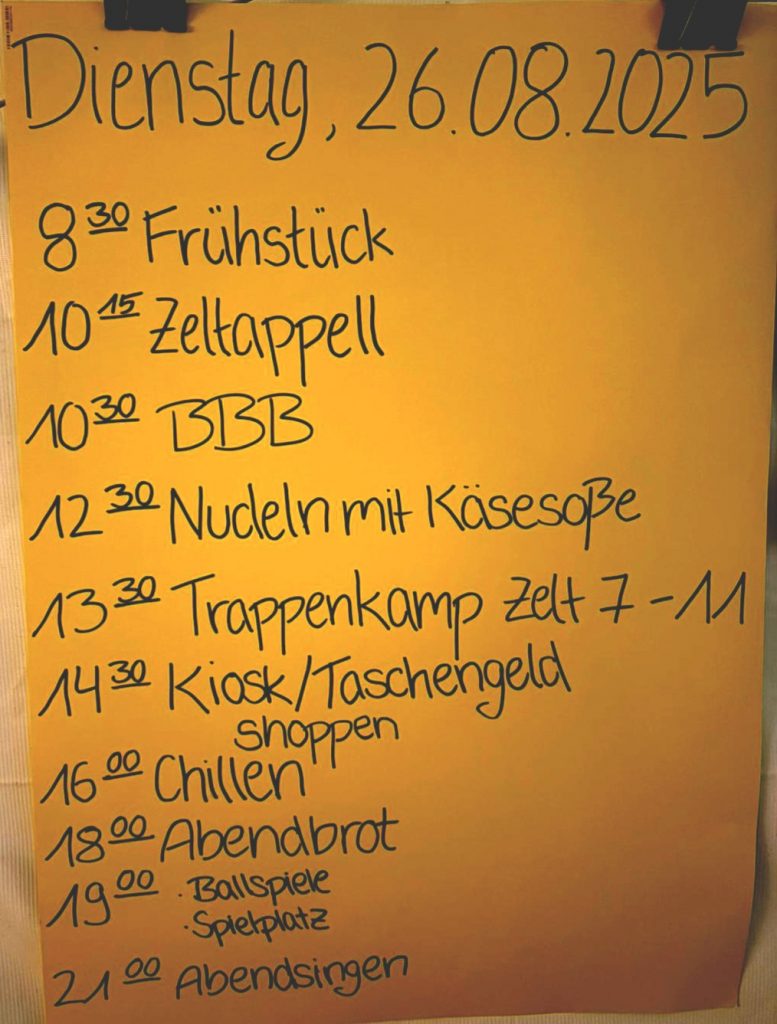 Dienstag, 26.08.2025
8 30 Frühstück
10 15 Zeltappell
10 30 BBB
12 30 Nudeln mit Käsesoße
13 30 Trappenkamp Zelt 7-11
14 30 Kiosk/Taschengeld
shoppen
16 00 Chillen
18 00 Abendbrot
19 00 · Ballspiele
· Spielplatz
21 00 Abendsingen